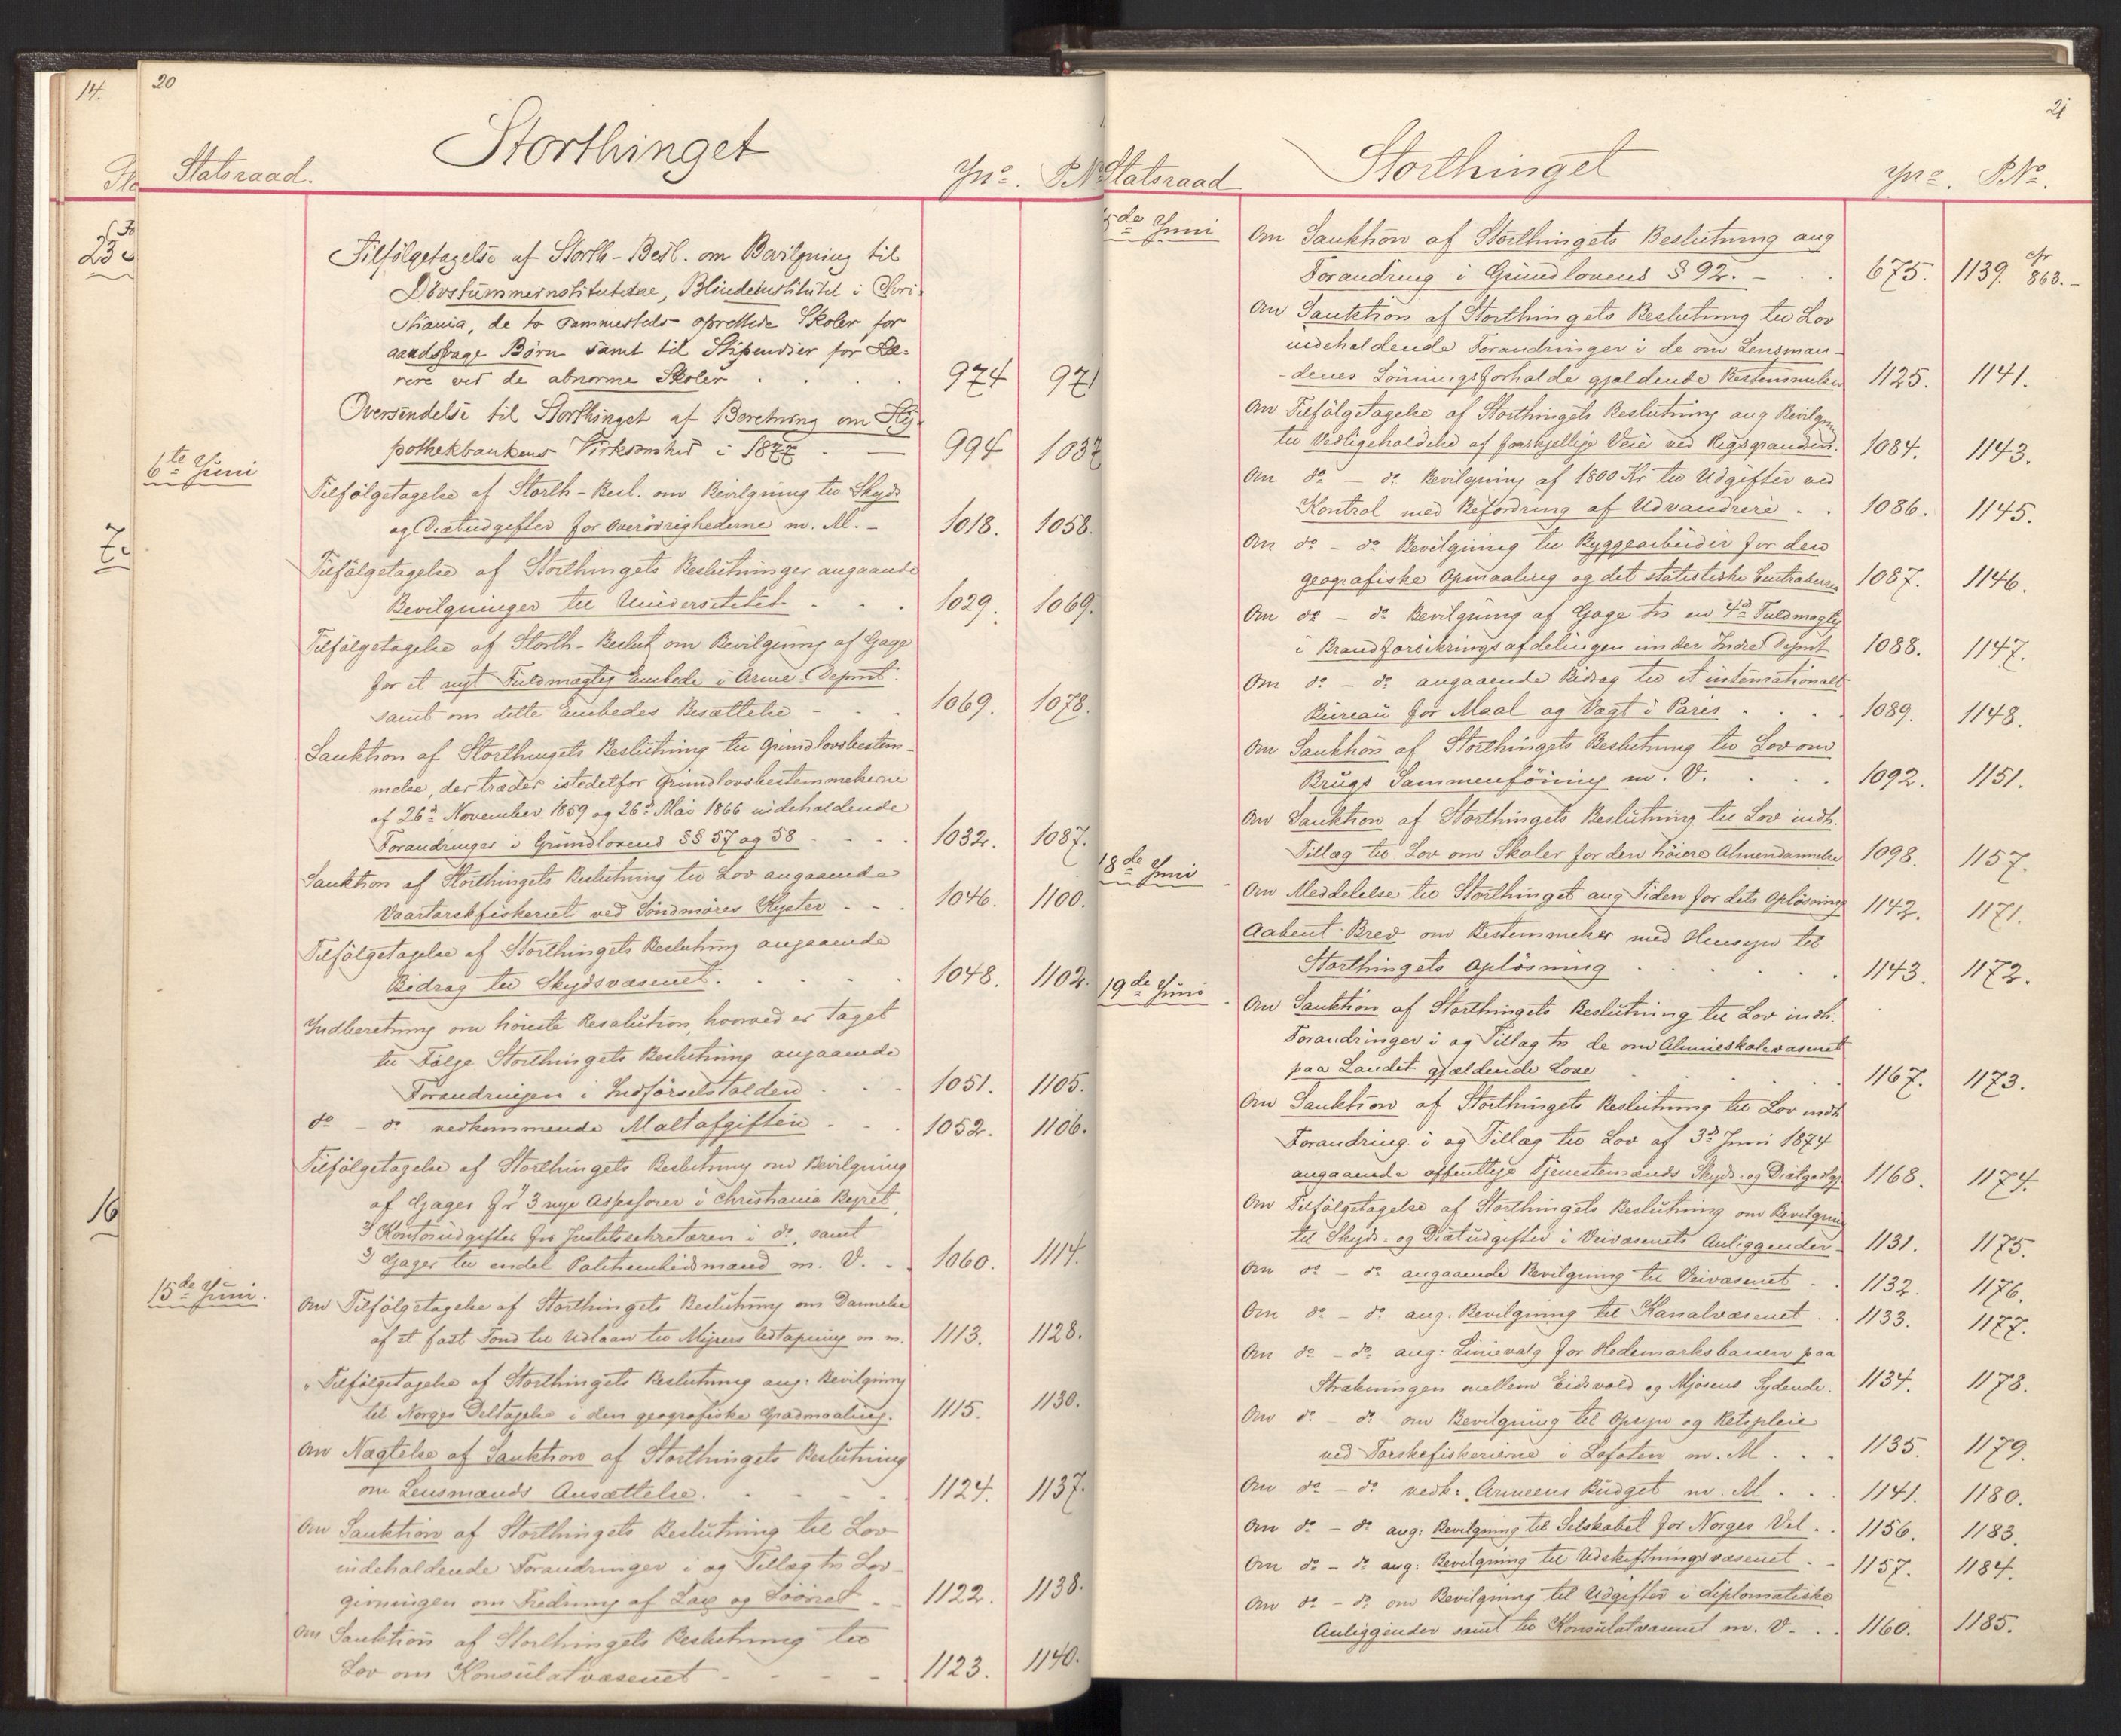 14.
20
Storthinget
Statsraad.
Jnº. P.Nº
23
7
16
Tilfölgetagelse af Storth-Besl. om Bevilgning til
Dövstummeinstituterne, Blindeinstitutet i Chri-
stiania, de to sammesteds oprettede Skoler for
aandssvage Börn samt til Stipendier for Læ-
rere ved de abnorme Skoler . . . 974 971
Oversendelse til Storthinget af Beretning om Hy-
pothekbankens Virksomhed i 1877 . — 994 1037
6te Juni
Tilfölgetagelse af Storth-Besl. om Bevilgning til Skyds
og Diætudgifter for Overövrighederne m. M. – 1018. 1058.
Tilfölgetagelse af Storthingets Beslutninger angaaende
Bevilgninger til Universitetet . . . 1029. 1069.
Tilfölgetagelse af Storth-Beslut om Bevilgning af Gage
for et nyt Fuldmægtig Embede i Arme-Depmt.
samt om dette Embedes Besættelse - - . 1069. 1078.
Sanktion af Storthingets Beslutning til Grundlovsbestem-
melse, der træder istedetfor Grundlovsbestemmelserne
af 26d November 1859 og 26d Mai 1866 indeholdende
Forandringer i Grundlovens §§ 57 og 58 . . . 1032. 1087.
Sanktion af Storthingets Beslutning til Lov angaaende
Vaartorskfiskeriet ved Söndmöres Kyster . - . 1046. 1100.
Tilfölgetagelse af Storthingets Beslutning angaaende
Bidrag til Skydsvæsenet . . . . . 1048. 1102.
Indberetning om höieste Resolution, hvorved er taget
til Fölge Storthingets Beslutning angaaende
Forandringen i Indförselstolden . . . 1051. 1105.
dº – dº vedkommende Maltafgiften . . . 1052. 1106.
Tilfölgetagelse af Storthingets Beslutning om Bevilgning
af Gager for 1) 3 nye Assessorer i Christiania Byret,
2) Kontorudgifter for Justitssekretæren i dº, samt
3) Gager til endel Politiembedsmænd m. V. . . 1060. 1114.
15de Juni.
Om Tilfölgetagelse af Storthingets Beslutning om Dannelse
af et fast Fond til Udlaan til Myrers Udtapning m. m. 1113. 1128.
" Tilfölgetagelse af Storthingets Beslutning ang. Bevilgning
til Norges Deltagelse i den geografiske Gradmaaling. 1115. 1130.
Om Nægtelse af Sanktion af Storthingets Beslutning
om Lensmænds Ansættelse. . . . . 1124. 1137.
Om Sanktion af Storthingets Beslutning til Lov
indeholdende Forandringer i og Tillæg til Lov-
givningen om Fredning af Lax og Söörret . . 1122. 1138.
Om Sanktion af Storthingets Beslutning til
Lov om Konsulatvæsenet - - - - 1123. 1140.
21
Storthinget
Statsraad
Jnº. P.Nº.
15de Juni
Om Sanktion af Storthingets Beslutning ang
Forandring i Grundlovens § 92. – . . 675. 1139. cfr 863. –
Om Sanktion af Storthingets Beslutning til Lov
indeholdende Forandringer i de om Lensmæn-
-denes Lönningsforholde gjældende Bestemmelser 1125. 1141.
Om Tilfölgetagelse af Storthingets Beslutning ang Bevilgn
til Vedligeholdelse af forskjellige Veie ved Rigsgrændsen. 1084. 1143.
Om dº – dº Bevilgning af 1800 Kr til Udgifter ved
Kontrol med Befordring af Udvandrere . . 1086. 1145.
Om dº – dº Bevilgning til Byggearbeider for den
geografiske Opmaaling og det statistiske Centralbureau 1087. 1146.
Om dº – dº Bevilgning af Gage til en 4d Fuldmægtig
i Brandforsikringsafdelingen under Indre Depmt 1088. 1147.
Om dº – dº angaaende Bidrag til et internationalt
Bureau for Maal og Vægt i Paris . . . . 1089. 1148.
Om Sanktion af Storthingets Beslutning til Lov om
Brugs Sammenföining m. V. . . . 1092. 1151.
Om Sanktion af Storthingets Beslutning til Lov indh.
Tillæg til Lov om Skoler for den höiere Almendannelse 1098. 1157.
18de Juni
Om Meddelelse til Storthinget ang Tiden for dets Oplösning 1142. 1171.
Aabent Brev om Bestemmelser med Hensyn til
Storthingets Oplösning . . . . . 1143. 1172.
19de Juni
Om Sanktion af Storthingets Beslutning til Lov indh.
Forandringer i og Tillæg til de om Almueskolevæsenet
paa Landet gjældende Love . . . . 1167. 1173.
Om Sanktion af Storthingets Beslutning til Lov indh
Forandring i og Tillæg til Lov af 3d Juni 1874
angaaende offentlige Tjenestemænds Skyds- og Diætgodtgj. 1168. 1174.
Om Tilfölgetagelse af Storthingets Beslutning om Bevilgning
til Skyds- og Diætudgifter i Veivæsenets Anliggender – 1131. 1175.
Om dº – dº angaaende Bevilgning til Veivæsenet . . 1132. 1176.
Om dº – dº ang. Bevilgning til Kanalvæsenet . . 1133. 1177.
Om dº – dº ang: Linievalg for Hedemarksbanen paa
Strækningen mellem Eidsvold og Mjösens Sydende. 1134. 1178.
Om dº – dº om Bevilgning til Opsyn og Retspleie
ved Torskefiskerierne i Lofoten m. M . . . 1135. 1179.
Om dº – dº vedk: Armeens Budget m. M . . 1141. 1180.
Om dº – dº ang: Bevilgning til Selskabet for Norges Vel . . 1156. 1183.
Om dº – dº ang: Bevilgning til Udskiftningsvæsenet . – 1157. 1184.
Om dº – dº om Bevilgning til Udgifter i diplomatiske
Anliggender samt til Konsulatvæsenet m. V. . . 1160. 1185.